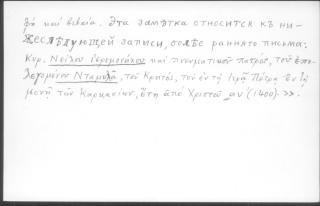 ξή καὶ βεβαία. Эта замѣтка относится къ ни-
жеслѣдующей записи, болѣе раннего письма:
Κυρ. Νείλου Ἱερομονάχου καὶ πνευματικοῦ πατρός, τοῦ ἐπο-
λεγομένου Νταμιλᾶ, τοῦ Κρητός, τοῦ ἐν τῇ Ἱερᾷ Πέτρᾳ ἐν τῇ
μονῇ τῶν Καρκασίων, ἔτη ἀπὸ Χριστοῦ αυ' (1400). >>.